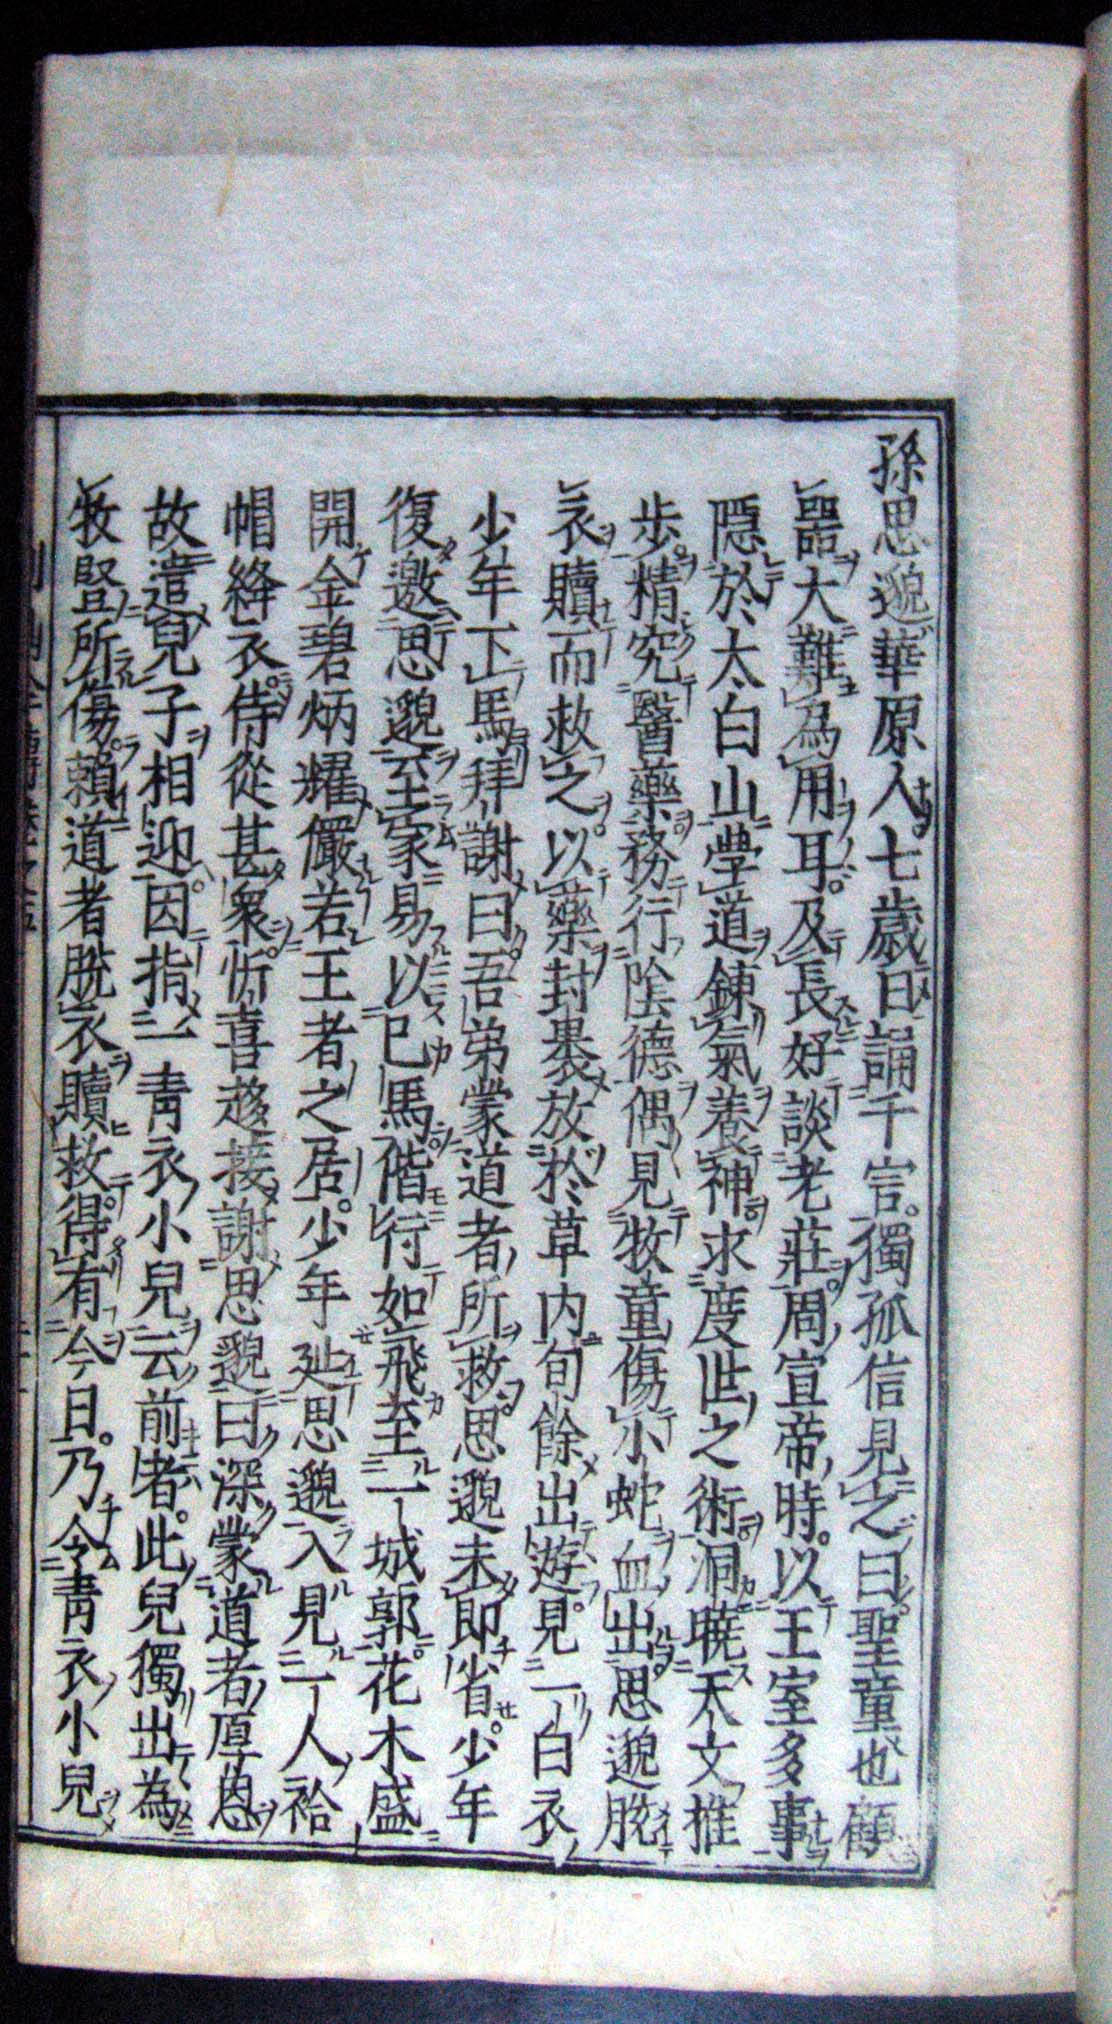 孫思邈華原人七歲日誦千言獨孤信見之曰聖童也顧
器大難為用耳及長好談老莊周宣帝時以王室多事
隱於太白山學道錬氣養神求度世之術洞曉天文推
歩精究醫藥務行陰德偶見牧童傷小蛇血出思邈脫
衣贖而救之以藥封裹放於草内旬餘出遊見一白衣
少年下馬拜謝曰吾弟蒙道者所救思邈未即省少年
復邀思邈至家易以已馬偕行如飛至一城郭花木盛
開金碧炳耀儼若王者之居少年延思邈入見一人袷
帽絳衣侍從甚衆忻喜趍接謝思邈曰深蒙道者厚恩
故遣兒子相迎因指一青衣小兒云前者此兒獨出為
牧豎所傷賴道者脫衣贖救得有今日乃令青衣小兒